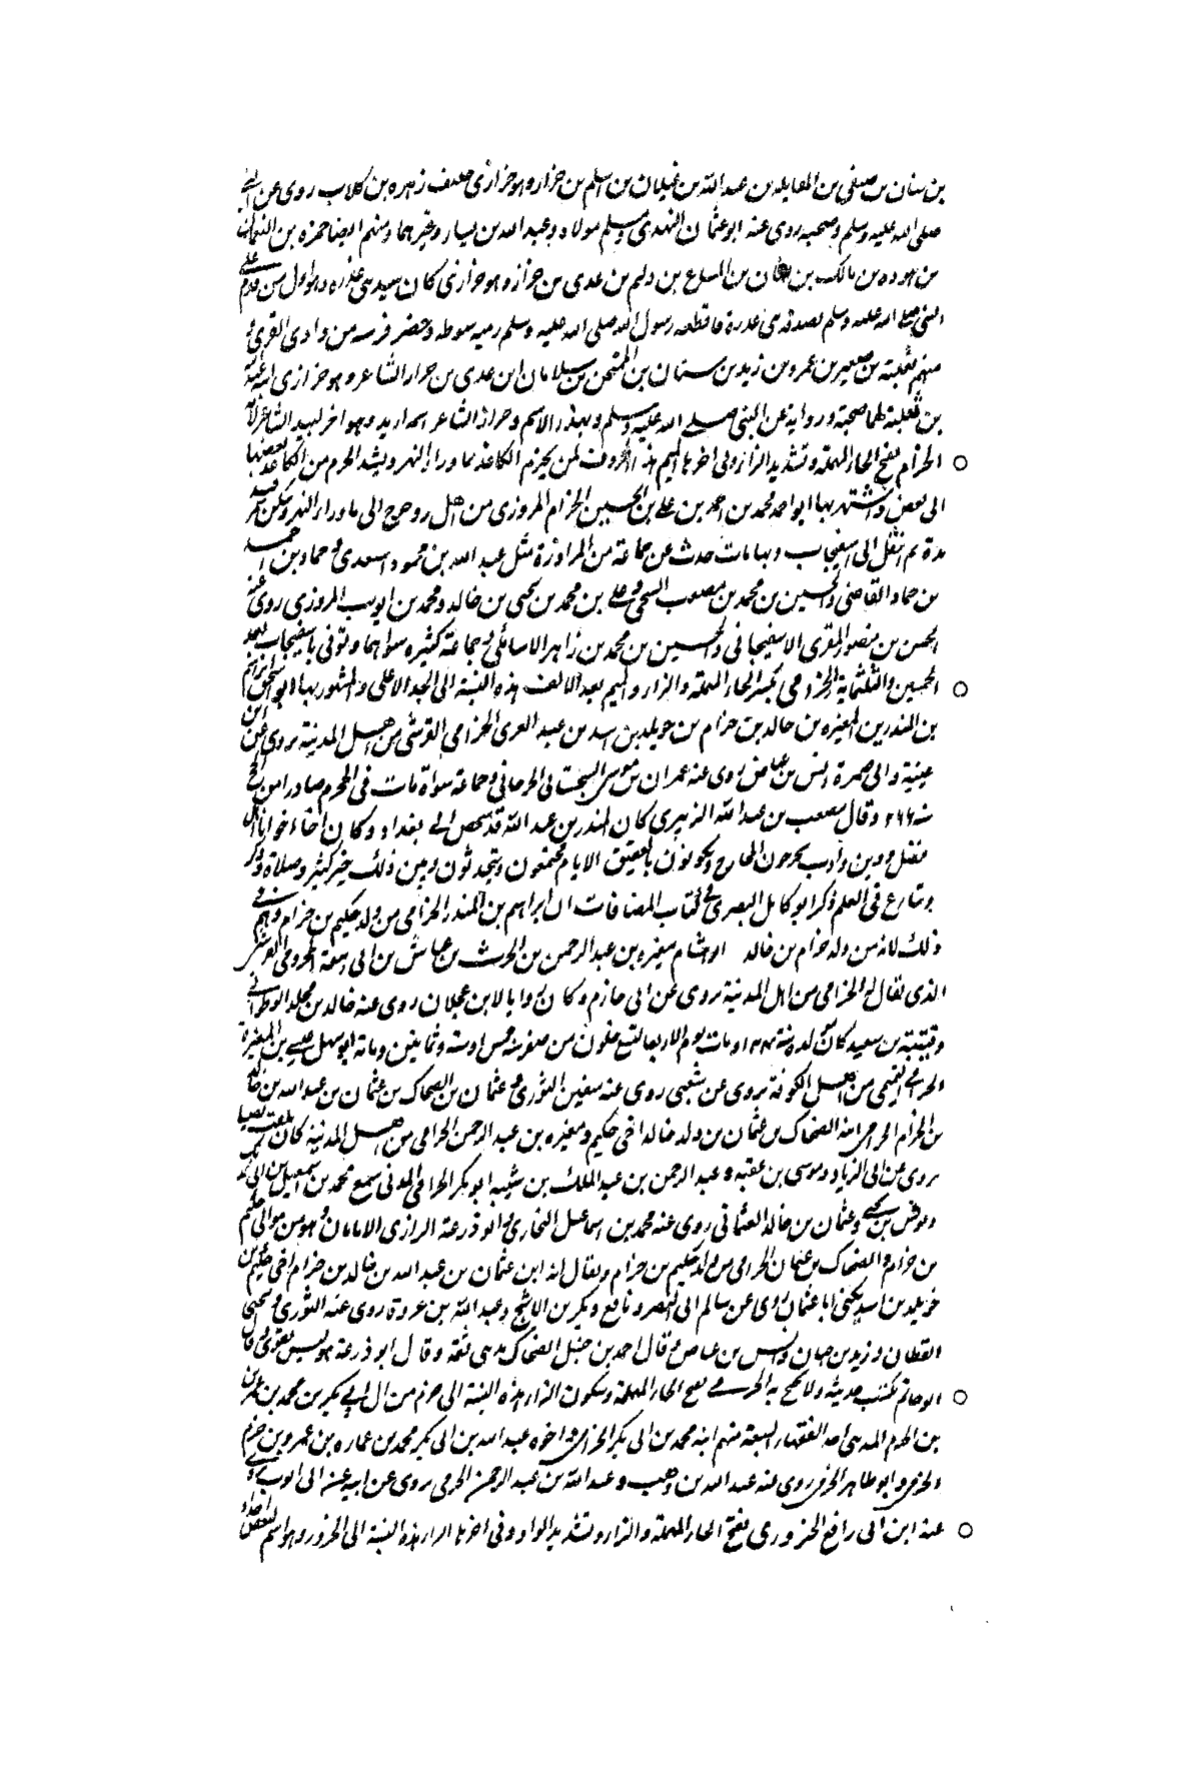 بن سنان بن صيفى بن المعايله بن عبد الله بن غيلان بن اسلم بن حزار وهو حزازى حليف زهره بن كلاب روى عن النبى
صلى الله عليه وسلم وصحبه روى عنه ابو عثمان النهدى ومسلم مولاه وعبد الله بن يسار وغيرهما ومنهم ايضا حمزه بن النعمان
بن هوده بن مالك بن سنان بن البياع بن دليم بن عدى بن حزاز وهو حزازى كان سيد بنى عذره وهو اول من قدم على
النبى صلى الله عليه وسلم بصدقه بنى عذرة فاقطعه رسول الله صلى الله عليه وسلم رميه سوطه وحضر فرسه من وادى القرى
منهم ثعلبته بن صعير بن عمرو بن زيد بن سنان بن المتهجن بن سلامان ابن عدى بن حراز الشاعر وهو حزازى ابنه عبد الله
بن ثعلبة لهما صحبة ورواية عن النبى صلى الله عليه وسلم وبهذه الاسم وحراز الشاعر اسمه اربد وهو اخو لبيد الشاعر لامه
الحزام بفتح الحاء المهملة وتشديد الزاء وفى اخرها الميم هذه الحروف لمن يحزم الكاغذ بما وراء النهر ويشد الحزم من الكاغذ بعضها
الى بعض واشتهر بها ابو احمد محمد بن احمد بن على بن الحسين الحزام المروزى من اهل مرو خرج الى ما وراء النهر وسكن سمرقند
مدة ثم انتقل الى اسفيجاب وبها مات حدث عن جماعة من المراوزة مثل عبد الله بن محمود السعدى وحماد بن احمد
بن حماد القاضى والحسين بن محمد بن مصعب السنجى وعلى بن محمد بن يحيى بن خالد ومحمد بن ايوب المروزى روى عنه
الحسن بن منصور المقرى الاسفيجابى والحسين بن محمد بن زاهر الاسامى وجماعة كثيره سواهما وتوفى باسفيجاب بعد
الخمسين والثلثماية الحزامى بكسر الحاء المهملة والزاء والميم بعد الالف هذه النسبة الى الجد الاعلى والمشهور بها ابو اسحق ابراهيم
بن المنذر بن المغيره بن خالد بن حزام بن خويلد بن اسد بن عبد العزى الحزامى القرشى من اهل المدينة يروى عن ابن
عيينة وابى ضمرة انس بن عياض روى عنه عمران بن موسى السجستانى الجرجانى وجماعة سواه مات فى المحرم صادرا من الحج
سنه ٢٦٦ وقال مصعب بن عبد الله الزبيرى كان المنذر بن عبد الله قد شخص الى بغداد وكان اخا اخوانا اهل
فضل ودين وادب يخرجون المخارج ويكونون بالعقيق الايام يجتمعون ويتحدثون وبين ذلك خير كثير وصلاة وذكر
وتنازع فى العلم ذكر ابو كامل البصرى فى كتاب المضافات ان ابراهيم بن المنذر الحزامى من ولد حكيم بن حزام وهم فى
ذلك لانه من ولد حزام بن خالد ابو هشام مغيره بن عبد الرحمن بن الحرث بن عياش بن ابى ربيعة المخزومى القرشى
الذى يقال له الحزامى من اهل المدينة يروى عن ابى حازم وكان راويا لابن عجلان روى عنه خالد بن مخلد القطوانى
وقتيبته بن سعيد كان مولده سنة ١٢٤ ومات يوم الاربعا لتسع خلون من صفر سنة خمس او ستة وثمانين ومائة ابو سهل عيسى بن المغيرة
الحزامى التميمى من اهل الكوفة يروى عن شعبى روى عنه سفين الثورى وعثمان بن الضحاك بن عثمان بن عبد الله بن خالد
بن الحزام الحزامى ابنه الضحاك بن عثمان من ولد خالد اخى حكيم ومغيره بن عبد الرحمن الحزامى من اهل المدينة كان يلقب بقصيا
يروى عن ابى الزناد وموسى بن عقبه وعبد الرحمن بن عبد الملك بن شيبه ابو بكر الحزامى المدنى سمع محمد بن اسمعيل بن ابى فديك
ويونس بن يحيى وعثمان بن خالد العثمانى روى عنه محمد بن اسماعيل البخارى وابو ذرعة الرازى الامامان وهو من موالى حكيم
بن حزام والضحاك بن عثمان الحزامى من ولد حكيم بن حزام ويقال انه ابن عثمان بن عبد الله بن خالد بن حزام اخى حكيم بن
خويلد بن اسد يكنى ابا عثمان روى عن سالم ابى النضر ونافع وبكير بن الاشج وعبد الله بن عروة روى عنه الثورى ويحيى
القطان وزيد بن حبان وانس بن عياض وقال احمد بن حنبل الضحاك مدنى ثقة وقال ابو ذرعة هو ليس بقوى وقال
ابو حاتم يكتب حديثه ولا يحتج به الحزمى بفتح الحاء المهملة وسكون الزاء هذه النسبة الى حزم من ال ابى بكر بن محمد بن عمرو
بن الحزم المدنى احد الفقهاء السبعة منهم ابنه محمد بن ابى بكر الحزمى واخوه عبد الله بن ابى بكر محمد بن عماره بن عمرو بن حزم
الحزمى وابو طاهر الحزمى روى عنه عبد الله بن وهب وعبد الله بن عبد الرحمن الحزمى روى عن ابيه عن ابى ايوب روى
عنه ابن ابى رافع الحزورى بفتح الحاء المهملة والزاء وتشديد الواو وفى اخرها الراء هذه النسبة الى الحزور وهو اسم لبعض اجداد